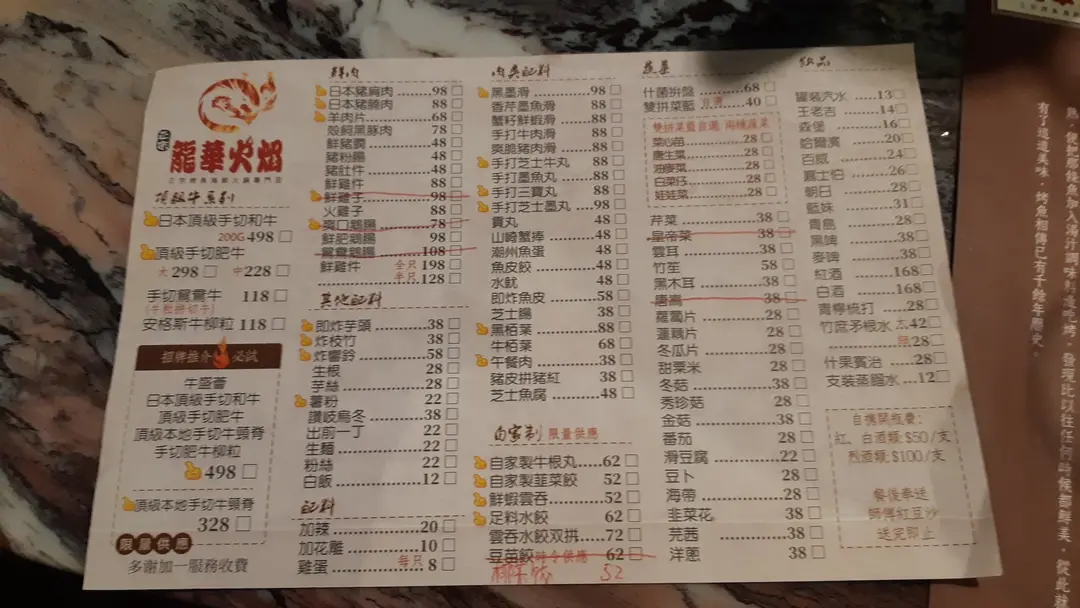 龍華火焰
頂級牛系列
日本頂級手切和牛
200G 498
頂級手切肥牛
大 298 中 228
手切鴛鴦牛 118
安格斯牛柳粒 118
招牌推介 必試
牛盛薈
日本頂級手切和牛
頂級手切肥牛
頂級本地手切牛頸脊
手切肥牛柳粒
498
頂級本地手切牛頸脊
328
限量供應
多謝加一服務收費
鮮肉
日本豬肩肉 98
日本豬腩肉 88
羊肉片 68
殼飼黑豚肉 78
鮮豬膶 48
豬粉腸 48
豬肚件 48
鮮雞件 88
鮮雞子 98
火雞子 88
爽口鵝腸 78
鮮肥鵝腸 98
鴛鴦鵝腸 108
鮮雞件 全只 198
半只 128
其他配料
即炸芋頭 38
炸枝竹 38
炸響鈴 58
生根 28
芋絲 28
薯粉 22
讚岐烏冬 38
出前一丁 22
生麵 22
粉絲 22
白飯 12
配料
加辣 20
加花雕 10
雞蛋 每只 8
肉類配料
黑墨滑 98
香芹墨魚滑 88
蟹籽鮮蝦滑 88
手打牛肉滑 88
爽脆豬肉滑 88
手打芝士牛丸 88
手打墨魚丸 88
手打三寶丸 88
手打芝士墨丸 98
貢丸 48
山崎蟹捧 48
潮州魚蛋 48
魚皮餃 48
水魷 48
即炸魚皮 58
芝士腸 38
黑栢葉 88
牛栢葉 68
午餐肉 38
豬皮拼豬紅 38
芝士魚腐 48
自家製 限量供應
自家製牛根丸 62
自家製韮菜餃 52
鮮蝦雲吞 52
足料水餃 62
雲吞水餃双拼 72
豆苗餃 時令供應 62
52
蔬菜
什菌拼盤 68
雙拼菜籃 自選 40
雙拼菜籃自選 兩種蔬菜
菜心苗 28
唐生菜 28
油麥菜 28
白菜仔 28
娃娃菜 28
芹菜 38
皇帝菜 38
雲耳 38
竹笙 58
黑木耳 38
唐蒿 38
蘿蔔片 28
蓮藕片 28
冬瓜片 28
甜粟米 28
冬菇 38
秀珍菇 28
金菇 38
番茄 28
滑豆腐 22
豆卜 28
海帶 28
韭菜花 38
芫茜 38
洋蔥 38
飲品
罐裝汽水 13
王老吉 14
森堡 16
哈爾濱 20
百威 24
嘉士伯 26
朝日 28
藍妹 31
青島 28
黑啤 38
麥啤 38
紅酒 168
白酒 168
青檸梳打 28
竹蔗茅根水 大 42
28
什果賓治 28
支裝蒸餾水 12
自攜開瓶費:
紅、白酒類 $50/支
烈酒類 $100/支
餐後奉送
師傅紅豆沙
送完即止
熱，使把那餘魚加入湯汁調味料邊吃烤，發現比以往任何時候都鮮美，從此就
有了這道美味，烤魚相傳已有千餘年歷史。